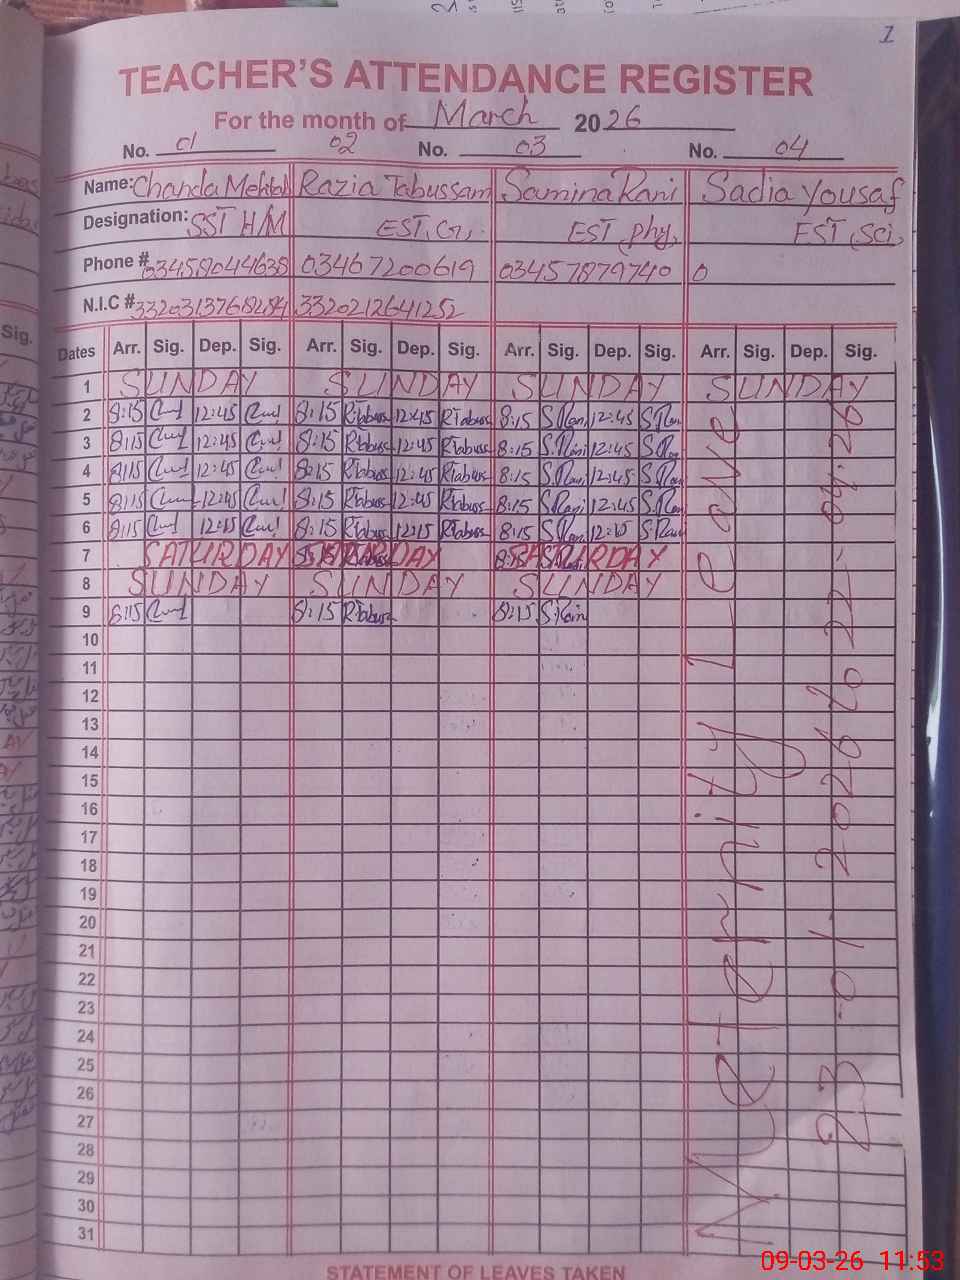 1
TEACHER'S ATTENDANCE REGISTER
For the month of March 2026
No. 01 02 No. 03 No. 04
Name: Chanda Mehtab Razia Tabussam Samina Rani Sadia Yousaf
Designation: SST H/M EST, Gr, EST, phy, EST, Sci,
Phone # 03458044638 03467200619 03457879740 0
N.I.C # 3320212641252
Dates Arr. Sig. Dep. Sig. Arr. Sig. Dep. Sig. Arr. Sig. Dep. Sig. Arr. Sig. Dep. Sig.
1 SUNDAY SUNDAY SUNDAY SUNDAY
2 8:15 12:45 8:15 RTabuss 12:45 RTabuss 8:15 S.Rani 12:45 S.Ran
3 8:15 12:45 8:15 RTabuss 12:45 RTabuss 8:15 S.Rani 12:45 S.Ra
4 8:15 12:45 8:15 RTabuss 12:45 RTabuss 8:15 S.Rani 12:45 S.Ra
5 8:15 12:45 8:15 RTabuss 12:45 RTabuss 8:15 S.Rani 12:45 S.Ra
6 8:15 12:45 8:15 RTabuss 12:15 RTabuss 8:15 S.Ra 12:15 S.Ra
7 SATURDAY SATURDAY SATURDAY
8 SUNDAY SUNDAY SUNDAY
9 8:15 8:15 RTabuss 8:15 S.Rain
10
11
12
13
14
15
16
17
18
19
20
21
22
23
24
25
26
27
28
29
30
31
Meternity Leave
23-01-2026 to 22-04-26
STATEMENT OF LEAVES TAKEN
09-03-26 11:53